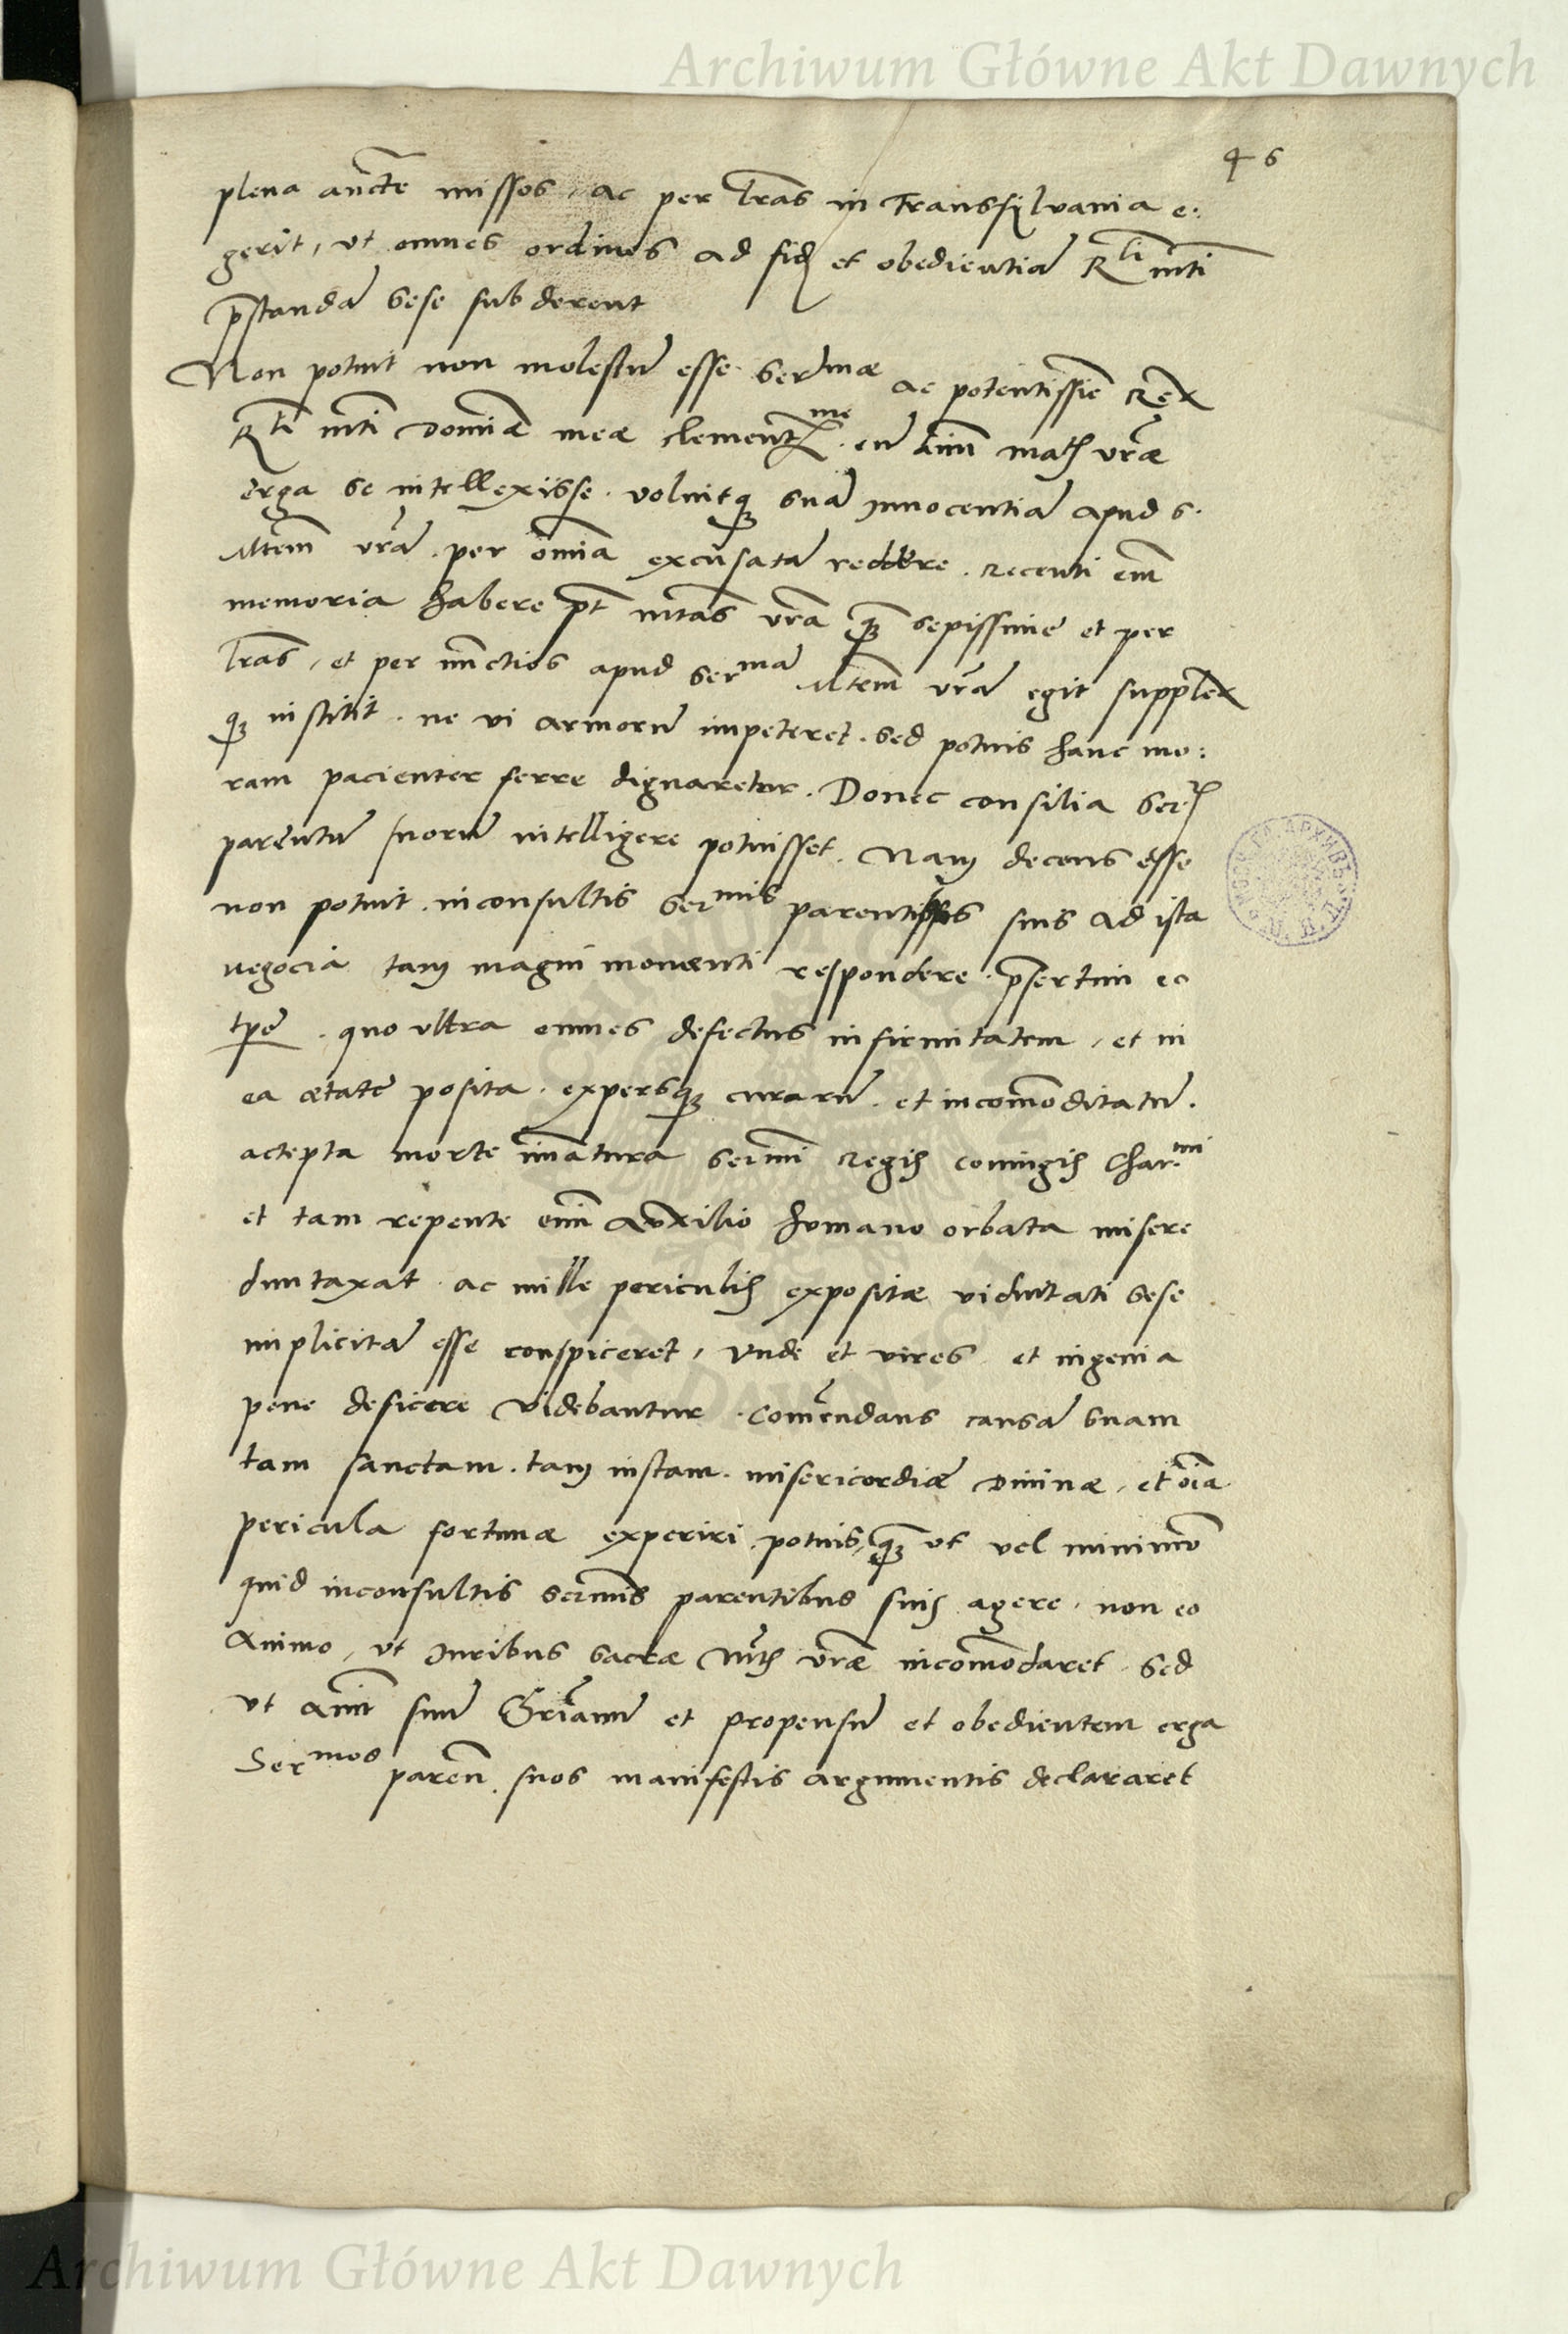 Archiwum Główne Akt Dawnych
46
plena aucte missos, ac per lras in Transsylvania e:
gerit, ut omnes ordines ad fid et obedientia Rli mti
prstanda sese subderent
Non potuit non molestu esse serlmae ac potentissie Rex
Rli mti Domiae meae clement me eu aim matis vrae
erga se intellexisse. voluitq sua innocentia apud S.
Mtem vra per omia excusata reddere. recenti em
memoria habere pt mtas vra q sepissime et per
lras, et per nuctios apud serma Mtem vra egit supplex
q institit. ne vi armoru impeteret. sed potius hanc mo:
ram pacienter ferre dignaretur. Donec consilia ser
parentu suoru intelligere potuisset. Nam decens esse
non potuit. inconsultis sermis parentibus suis ad ista
negocia tam magni momenti respondere. prsertim eo
tpe. quo ultra omnes defectus infirmitatem, et in
ea aetate posita. expersq curaru. et incommoditatu.
accepta morte imatura sermi Regis coniugis Charmi
et tam repente omi Auxilio humano orbata misere
duntaxat. ac mille periculis expositae viduitati sese
implicita esse conspiceret, Unde et vires et ingenia
pene deficere videbantur. Comendans causa suam
tam sanctam. tam iustam. misericordiae Divinae, et oia
pericula fortunae experiri. potius, q ut vel minimu
quid inconsultis sermis parentibus suis agere. non eo
Animo, ut Iuribus sacrae Mtis vrae incommodaret. sed
ut aim suu Griamu et propensu et obedientem erga
Sermos paren. suos manifestis argumentis declararet
Archiwum Główne Akt Dawnych